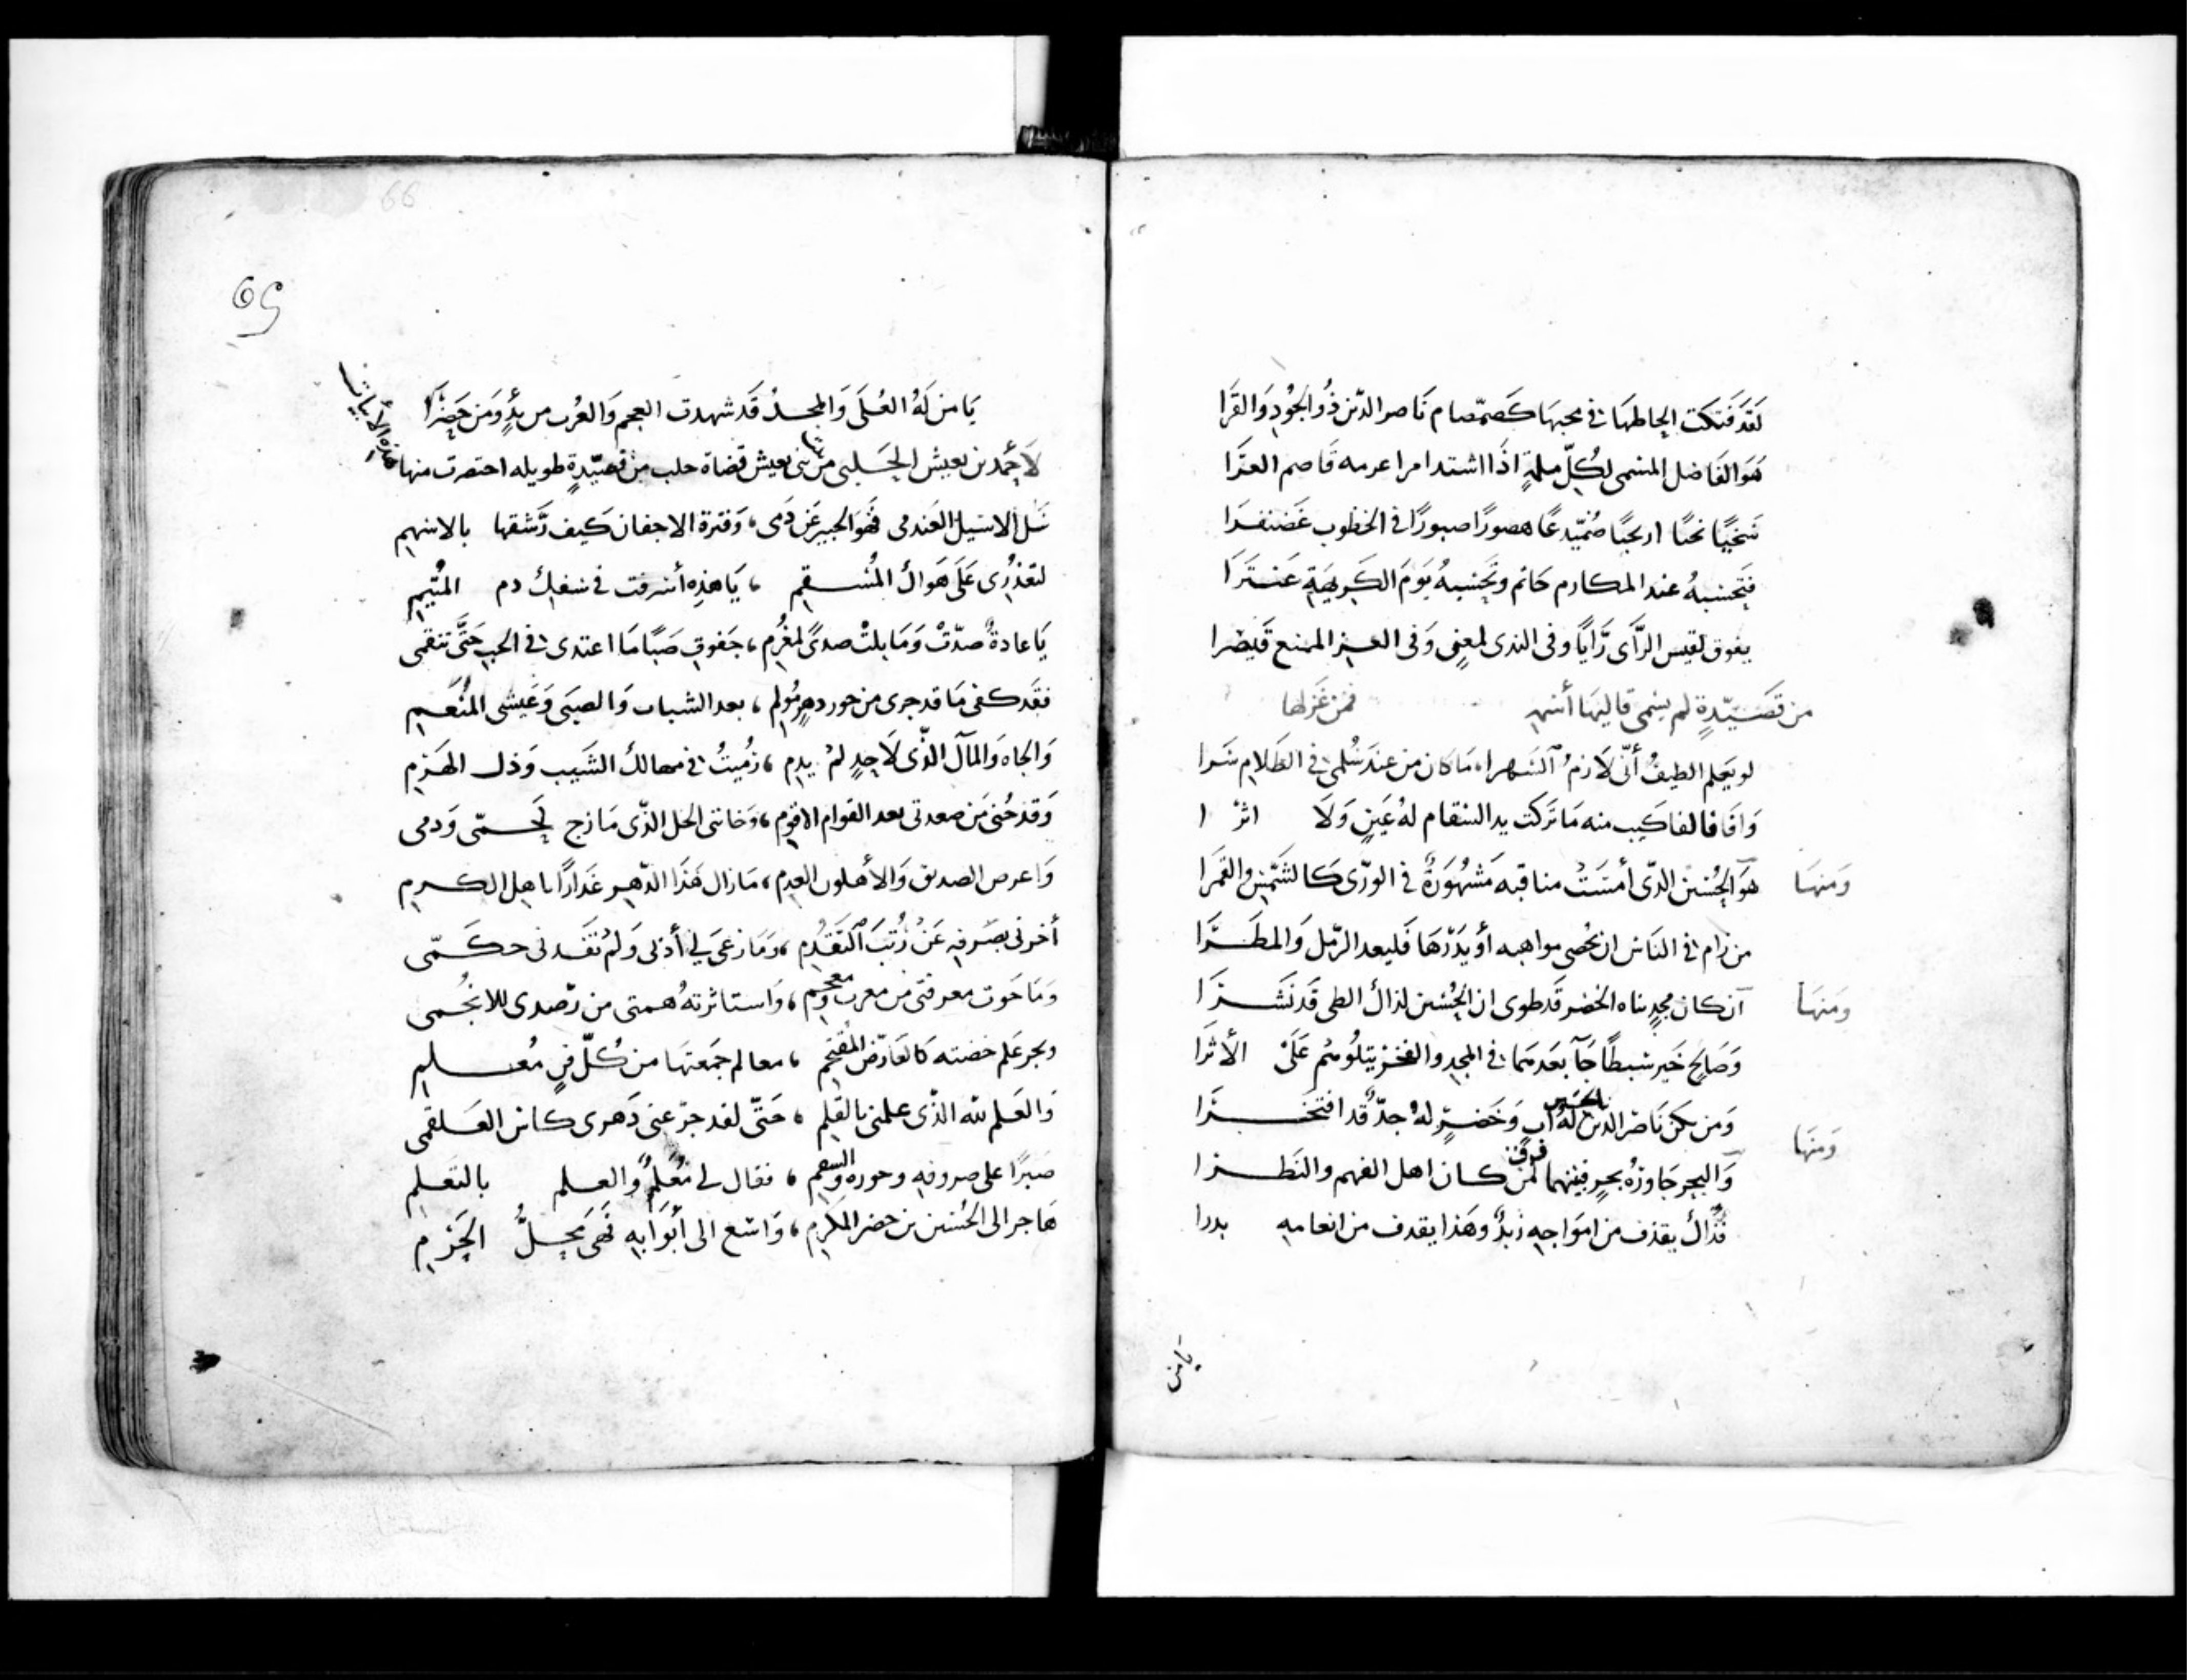 لَقَد فَتكت الحاظهَا في محبهَا كَصَمّصام نَاصر الدّين ذُو الجُودِ وَالقرَا
هَوَ الفَاضل المنمى لكُلّ ملمةٍ اذَا اشتد امرا عرمه فَاصم العرَا
سَخيًّا اريحيًا صُمّيّدعًا هصورًا صبورًا في الخطوب غَضنفرَا
فَتحسبهُ عند المكارم حَاتم وتَحسبهُ يَومَ الكَريهَةِ عَنترَا
يفوق لقيس الرَّأى رَأيًا وفى الندى لمعنٍ وَفى العز الممنع قَيصرا
من قَصَيّدةٍ لم يسمى قاليهَا أسهر فمن غَزلها
لو يَعلم الطيفُ أنّى لَازمُ السَهرا، مَا كان من عندَ سُلمى في الظَلامِ سَرا
وَافَا فالفا كَيب منه مَا تركت يد السقام لهُ عَينٍ وَلَا اثرُ ا
وَمنهَا هوَ الحُسَين الذّى أمسَتْ مناقبه مَشهُورةٌ في الورَى كَالشَمْسِ والقمَرا
من رَام في النَاس ان يحُصى مواهبه أو يَدّرهَا فَليعد الرّمل وَالمطَرَا
وَمنهَا ان كان مجدٍ بناه الخضر قَد طوى ان الحُسَين لذاك الطى قَد نَشرَا
وَصَالح خَير شبطًا جَآ بعَدهمَا في المجدِ والفخر يتلُوهُم عَلَىْ الأَثرَا
وَمنهَا وَمن يكن نَاصر الدّين الحسين لهُ ابٍ وَخَضرٍ لهُ جدٌّ قد افتَخَرَا
وَالبحر جَاوزهُ بحرٍ فبينهما فرق لمن كَان اهل الفهم والنَظرا
فذَاكَ يقذف من امَواجهِ زبدٌ وهَذا يقدف من انعامهِ دررا
يَا من
66
65
يَا من لَهُ العُلَى وَالمجدُ قَد شهدت العجم وَالعُرب من بدٍو وَمَن حَضرَا
لأحمد بن يعيش الحلبى من بنى يعيش قضاة حلب من قصَيّدةٍ طويله اختصرت منها هذه الأبيات
سَل الاسَيل العَندمى فَهَو الخبير عَن دَمى، وَفترة الاجفان كَيف رَشقها بالاسهم
لتعذرى عَلَى هَواك المُسقم ، يَا هَذِه أسرفت في سَفكِ دم المُتيّم
يَا عادةً صدّتْ وَمَا بلتْ صدىً لمغُرم، جَفوتِ صَبًّا مَا اعتدى في الحبِ حَتَّى تنقمى
فقَد كفى مَا قد جرى من جور دهرٍ مُولم ، بعد الشباب وَالصبَى وَعَيشى المُنَعم
وَالجاه وَالمآل الذّى لَاحدٍ لمْ يدم ، رُميتُ في مهالك الشَيب وَذل الهَرم
وَقد حُنى مَن صعدتى بعد القوام الاقوم، وَخاننى الخل الذّى مَازج لَحمّى وَدمى
وَاعرض الصديق وَالأهلون العدم، مَا زال هَذَا الدّهر غَدارًا باهل الكرم
أخرنى بصَرفهِ عَنْ رُتبَ التَقدُم، وَمَا رعىَ لي أدبى وَلمْ تفَدنى حكَمّى
وَمَا حَوت معرفتى من معربٍ ومعجم ، وَاستاثرتهُ همتى من رّصدى للانجُمى
وبحر علم خضته كَالعَارض المقتحم ، معالم جَمعتهَا من كُلّ فنٍ مُعلم
وَالعَلم لله الذّى علمنى بالقَلم ، حَتّى لقد جرّ عنى دَهرى كاس العَلقمى
صَبرًا على صروفهِ وجوره والسقم ، فقال لي تعُلمٌ والعلم بالتعلم
هَاجر الى الحُسَين بن خضر المكرم، وَاسَع الى أبُوَابهِ فَهَى مَحلُّ الحَرم